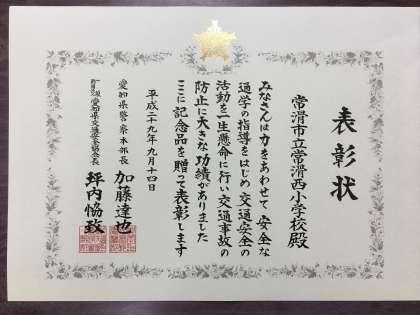 表彰状
常滑市立常滑西小学校殿
みなさんは力をあわせて 安全な
通学の指導をはじめ 交通安全の
活動を一生懸命に行い 交通事故の
防止に大きな功績がありました
ここに記念品を贈って表彰します
平成二十九年九月十四日
愛知県警察本部長 加藤達也
愛知県交通安全協会会長 坪内恊致